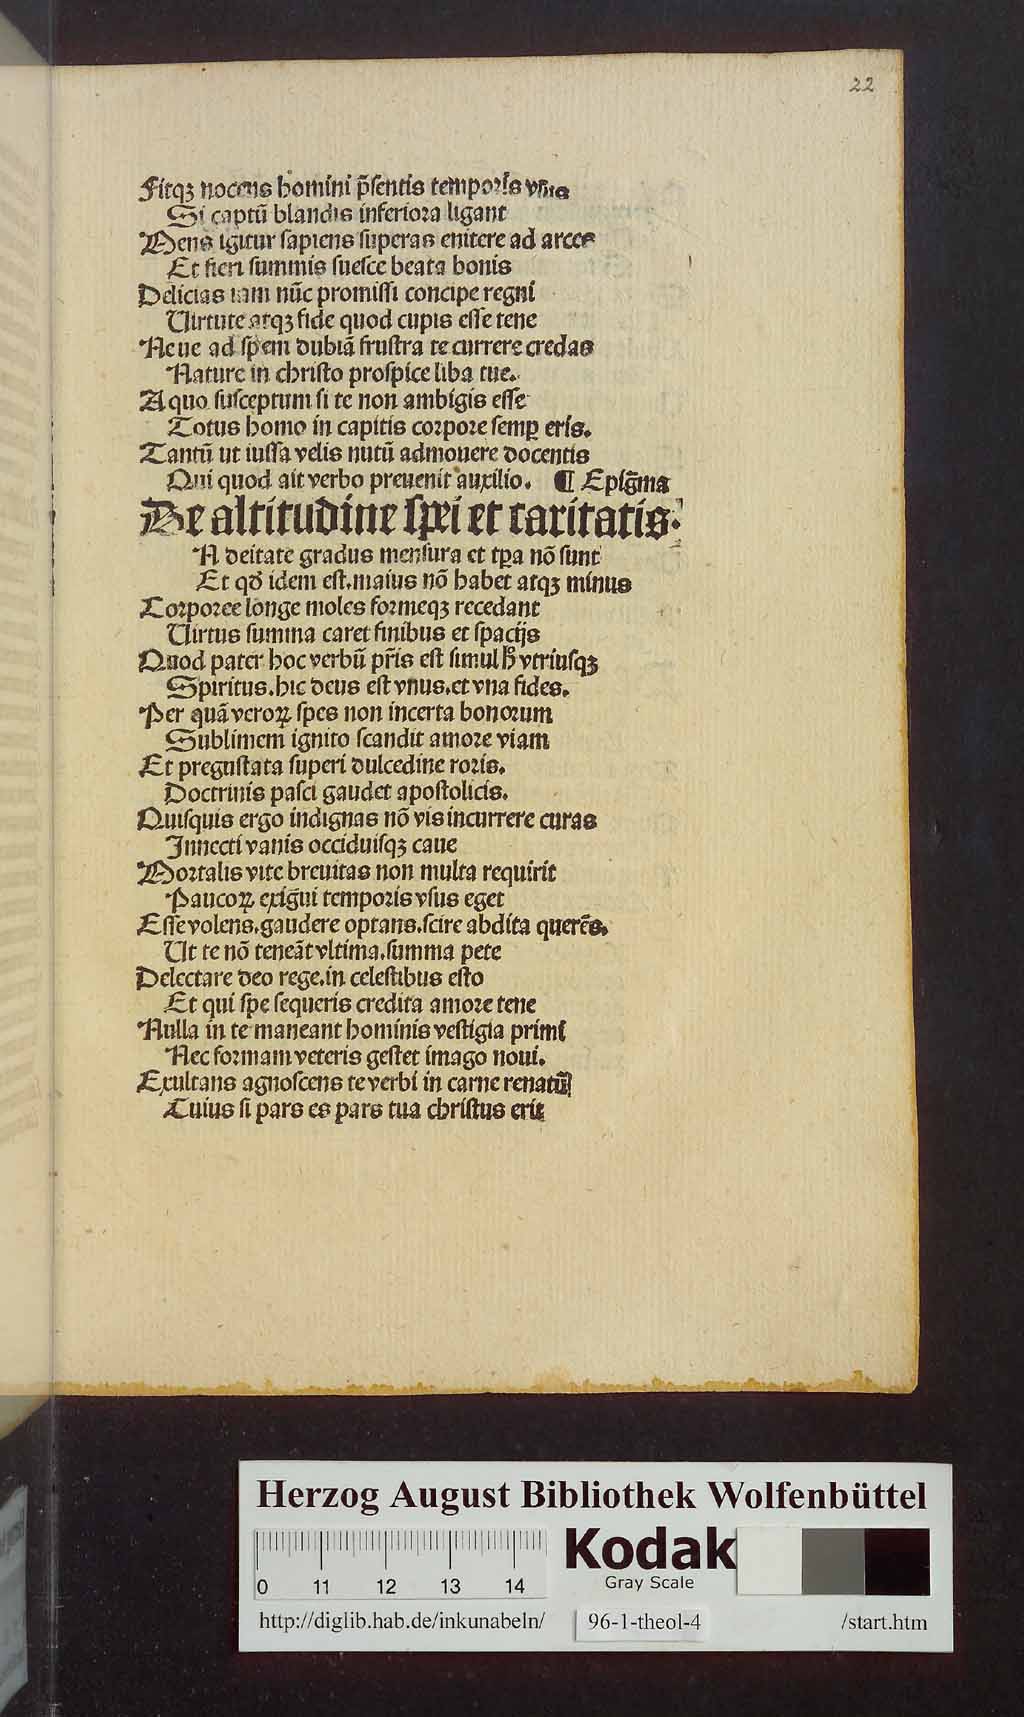 22
Fitqꝫ nocens homini p̄sentis temporis vsus
Si captū blandis inferiora ligant
Mens igitur sapiens superas enitere ad arces
Et fieri summis suesce beata bonis
Delicias iam nūc promissi concipe regni
Uirtute atqꝫ fide quod cupis esse tene
Neue ad spem dubiā frustra te currere credas
Nature in christo prospice liba tue.
A quo susceptum si te non ambigis esse
Totus homo in capitis corpore semꝑ eris.
Tantū ut iussa velis nutū admouere docentis
Qui quod ait verbo preuenit auxilio. ¶ Epigr̄ma
De altitudine spei et caritatis.
N deitate gradus mensura et tꝑa nō sunt
Et qd̓ idem est.maius nō habet atqꝫ minus
Corporee longe moles formeqꝫ recedant
Uirtus summa caret finibus et spacijs
Quod pater hoc verbū pr̄is est simul hͦ vtriusqꝫ
Spiritus.hic deus est vnus.et vna fides.
Per quā veroꝝ spes non incerta bonorum
Sublimem ignito scandit amore viam
Et pregustata superi dulcedine roris.
Doctrinis pasci gaudet apostolicis.
Quisquis ergo indignas nō vis incurrere curas
Innecti vanis occiduisqꝫ caue
Mortalis vite breuitas non multa requirit
Paucoꝝ exigui temporis vsus eget
Esse volens.gaudere optans.scire abdita querēs.
Ut te nō teneāt vltima.summa pete
Delectare deo rege.in celestibus esto
Et qui spe sequeris credita amore tene
Nulla in te maneant hominis vestigia primi
Nec formam veteris gestet imago noui.
Exultans agnoscens te verbi in carne renatū
Cuius si pars es pars tua christus erit
Herzog August Bibliothek Wolfenbüttel
Kodak
Gray Scale
0 11 12 13 14
http://diglib.hab.de/inkunabeln/ 96-1-theol-4 /start.htm